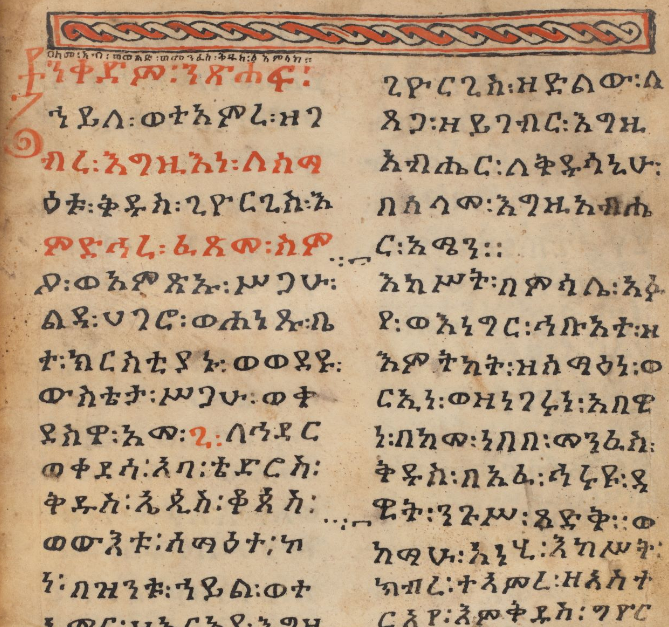 በስመ፡ አብ፡ ወወልድ፡ ወመንፈስ፡ ቅዱስ፡ ፩ አምላክ።
ንቀድም፡ንጽሐፍ፡
ኀይለ፡ወተአምረ፡ዘገ
ብረ፡እግዚእነ፡ለሰማ
ዕቱ፡ቅዱስ፡ጊዮርጊስ፡እ
ምድኅረ፡ፈጸመ፡ስም
ዖ፡ወአምጽኡ፡ሥጋሁ፡
ልዳ፡ሀገሮ፡ወሐነጹ፡ቤ
ተ፡ክርስቲያኑ፡ወወደዩ፡
ውስቴታ፡ሥጋሁ፡ወቀ
ደስዋ፡አመ፡፯፡ለኅዳር
ወቀደሳ፡አባ፡ቴዎድሮስ፡
ቅዱስ፡ኤጲስ፡ቆጶስ፡
ወውእቱ፡ሰማዕተ፡ኮ
ነ፡በዝንቱ፡ኀይል፡ወተ
ጊዮርጊስ፡ዘድልው፡ለ
ጸጋ፡ዘይገብር፡እግዚ
አብሔር፡ለቅዱሳኒሁ፡
በሰላመ፡እግዚአብሔ
ር፡አሜን፡፡
እከሥት፡በምሳሌ፡አፉ
የ፡ወእነግር፡ኅቡአተ፡ዘ
እምትካት፡ዘሰማዕነ፡ወ
ርኢነ፡ወዘነገሩነ፡አበዊ
ነ፡በከመ፡ነበበ፡መንፈስ፡
ቅዱስ፡በአፈ፡ኅሩይ፡ዳ
ዊት፡ንጉሥ፡ጻድቅ፡፡ወ
ከማሁ፡አነሂ፡እከሥት፡
ክብረ፡ተአምረ፡ዘአስተ
ርአየ፡እምቅዱስ፡ጊዮር